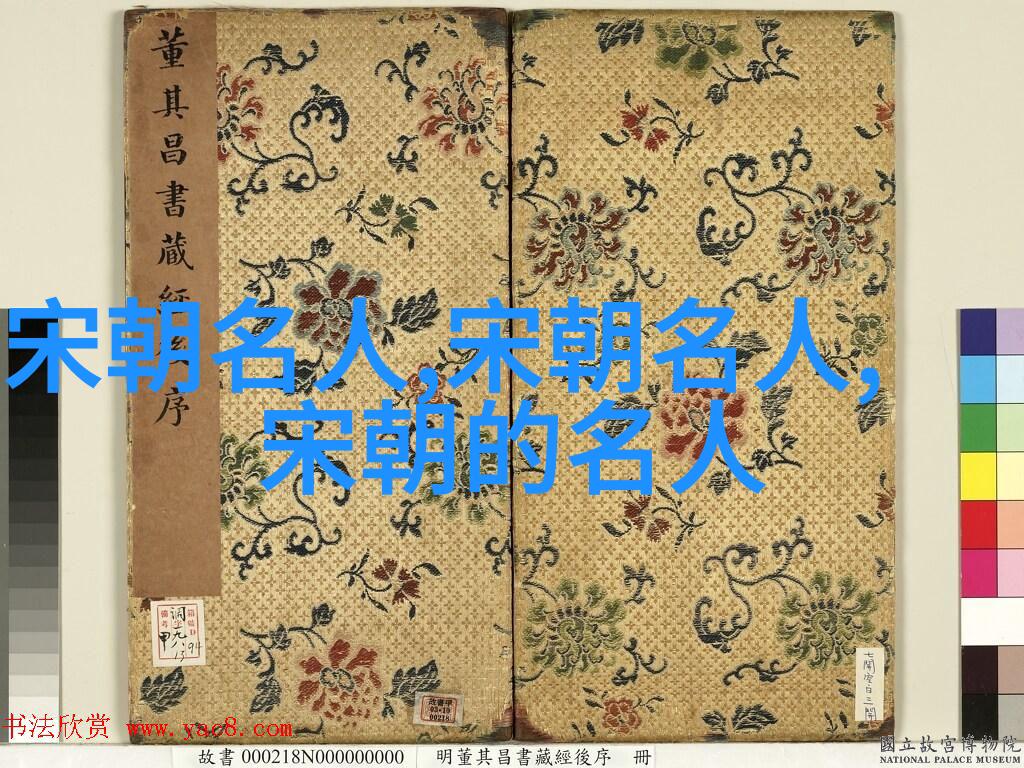 董其昌書藏經後序
宋朝名人,宋朝名人,
宋朝的名人
箱號D
備考
94
甲
13
故書甲
03•10
00218
七開空白三開
书法欣赏 www.yac8.com
故書 000218N000000000
明董其昌書藏經後序 冊
國立故宮博物院
NATIONAL PALACE MUSEUM